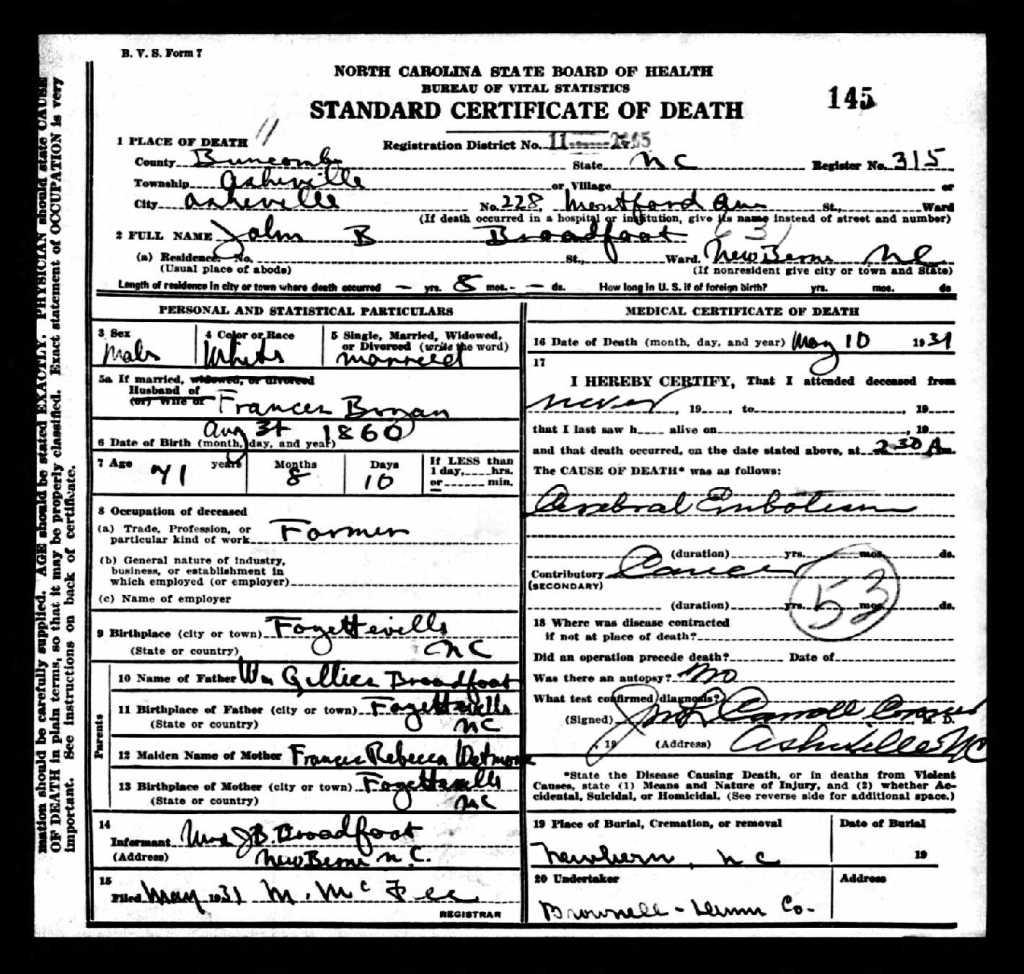 B. V. S. Form 7
NORTH CAROLINA STATE BOARD OF HEALTH
BUREAU OF VITAL STATISTICS
STANDARD CERTIFICATE OF DEATH
145
1 PLACE OF DEATH 11
Registration District No. 11
County Buncombe State NC Register No. 315
Township Asheville or Village or
City Asheville No. 228 Montford Ave St., Ward
(If death occurred in a hospital or institution, give its name instead of street and number)
2 FULL NAME John B Broadfoot
(a) Residence. No. St., Ward. New Bern NC
(Usual place of abode) (If nonresident give city or town and State)
Length of residence in city or town where death occurred — yrs. 8 mos. — ds. How long in U. S. if of foreign birth? yrs. mos. ds
PERSONAL AND STATISTICAL PARTICULARS
3 Sex 4 Color or Race 5 Single, Married, Widowed,
or Divorced (write the word)
Male White married
5a If married, widowed, or divorced
Husband of
(or) Wife of Frances Bryan
Aug 31 1860
6 Date of Birth (month, day, and year)
7 Age years Months Days If LESS than
1 day, hrs.
or min.
71 8 10
8 Occupation of deceased
(a) Trade, Profession, or
particular kind of work Farmer
(b) General nature of industry,
business, or establishment in
which employed (or employer)
(c) Name of employer
9 Birthplace (city or town) Fayetteville
(State or country) NC
Parents
10 Name of Father Wm Gillies Broadfoot
11 Birthplace of Father (city or town) Fayetteville
(State or country) NC
12 Maiden Name of Mother Frances Rebecca
13 Birthplace of Mother (city or town) Fayetteville
(State or country) NC
14
Informant Mrs J B. Broadfoot
(Address) New Bern N.C.
15
Filed May 1931 M. McFee
REGISTRAR
MEDICAL CERTIFICATE OF DEATH
16 Date of Death (month, day, and year) May 10 1931
17
I HEREBY CERTIFY, That I attended deceased from
never, 19 , to , 19
that I last saw h alive on , 19
and that death occurred, on the date stated above, at 2 30 A m.
The CAUSE OF DEATH* was as follows:
Cerebral Embolism
(duration) yrs. mos. ds.
Contributory Cancer
(SECONDARY)
(duration) yrs. mos. ds.
53
18 Where was disease contracted
if not at place of death?
Did an operation precede death? Date of
Was there an autopsy? No
What test confirmed diagnosis?
(Signed) Carroll Coroner M. D.
, 19 (Address) Asheville NC
*State the Disease Causing Death, or in deaths from Violent
Causes, state (1) Means and Nature of Injury, and (2) whether Ac-
cidental, Suicidal, or Homicidal. (See reverse side for additional space.)
19 Place of Burial, Cremation, or removal Date of Burial
Newbern, NC 19
20 Undertaker Address
Brownell - Dunn Co.
mation should be carefully supplied. AGE should be stated EXACTLY. PHYSICIAN should state CAUSE
OF DEATH in plain terms, so that it may be properly classified. Exact statement of OCCUPATION is very
important. See instructions on back of certificate.